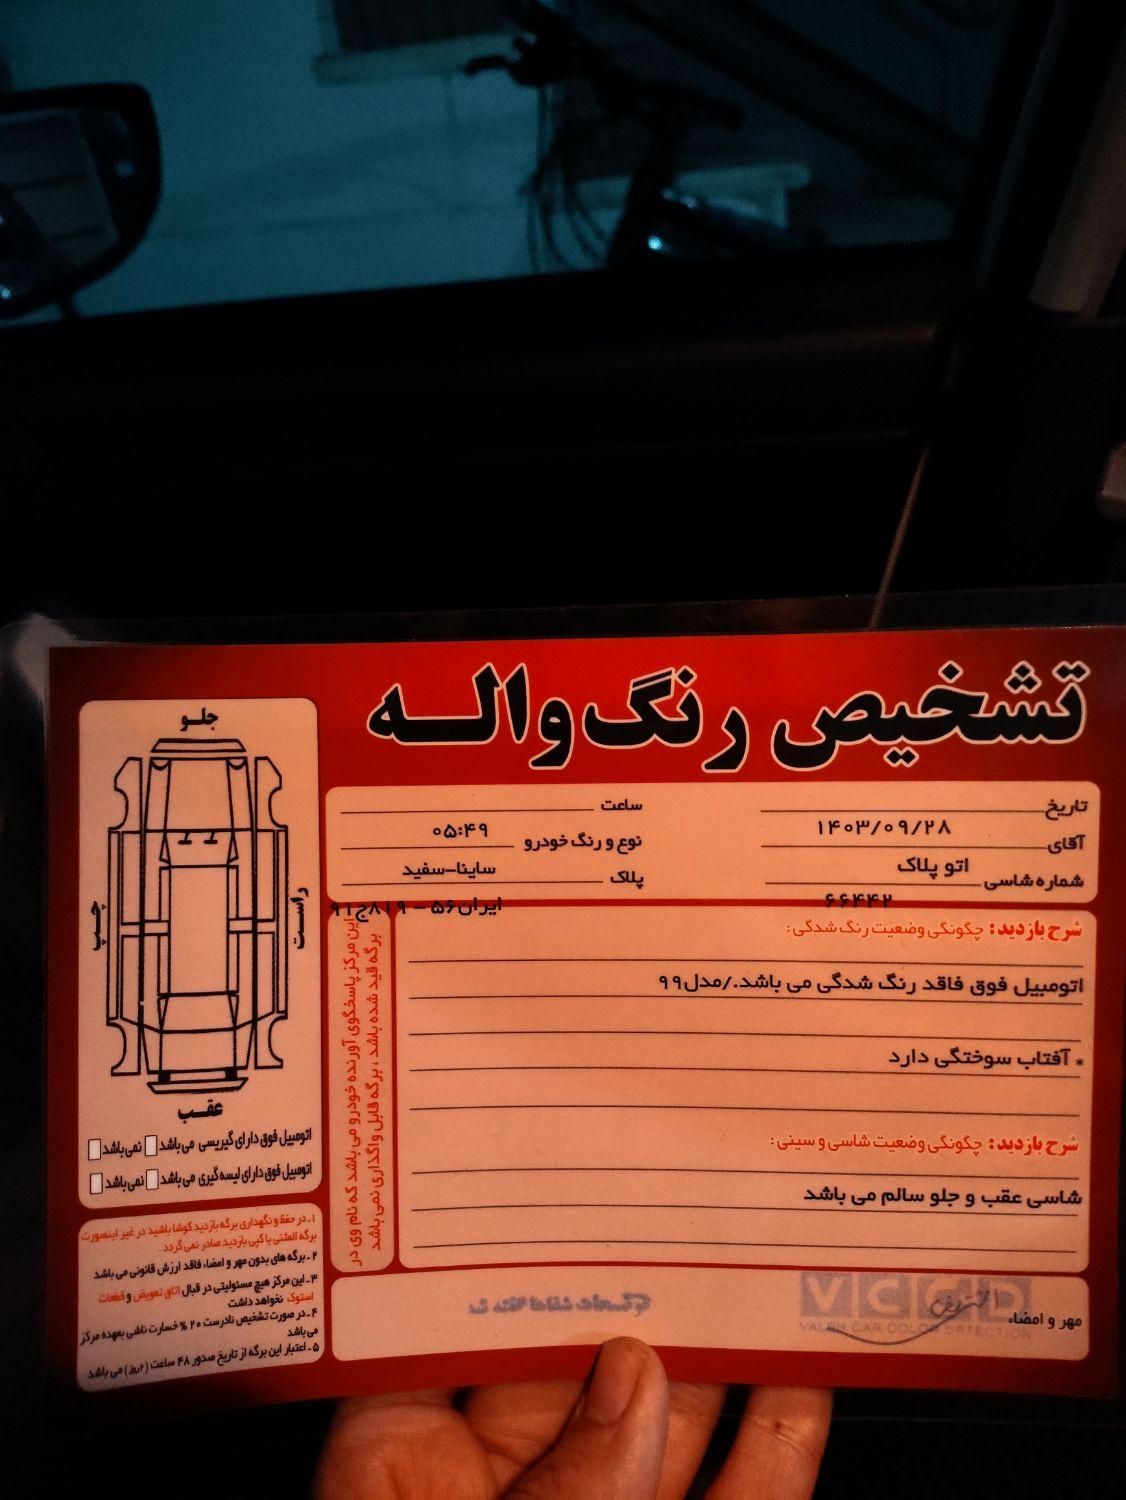 تشخیص رنگ واله
تاریخ ۱۴۰۳/۰۹/۲۸
ساعت ۰۵:۴۹
آقای اتو پلاک
نوع و رنگ خودرو ساینا-سفید
شماره شاسی ۶۶۴۴۲
پلاک ایران۵۶ - ۸۱۹ج۹۱
شرح بازدید: چگونگی وضعیت رنگ شدگی:
اتومبیل فوق فاقد رنگ شدگی می باشد./مدل۹۹
* آفتاب سوختگی دارد
شرح بازدید: چگونگی وضعیت شاسی و سینی:
شاسی عقب و جلو سالم می باشد
مهر و امضاء
VCCD
VALEH CAR COLOR DETECTION
این مرکز پاسخگوی آورنده خودرو می باشد که نام وی در
برگه قید شده باشد، برگه قابل واگذاری نمی باشد
جلو
چپ
راست
عقب
اتومبیل فوق دارای گیریسی می باشد نمی باشد
اتومبیل فوق دارای لیسه گیری می باشد نمی باشد
۱- در حفظ و نگهداری برگه بازدید کوشا باشید در غیر اینصورت
برگه المثنی یا کپی بازدید صادر نمی گردد.
۲- برگه های بدون مهر و امضاء، فاقد ارزش قانونی می باشد
۳- این مرکز هیچ مسئولیتی در قبال اتاق تعویض و قطعات
استوک نخواهد داشت
۴- در صورت تشخیص نادرست ۲۰ % خسارت ناشی بعهده مرکز
می باشد
۵- اعتبار این برگه از تاریخ صدور ۴۸ ساعت (۲روز) می باشد